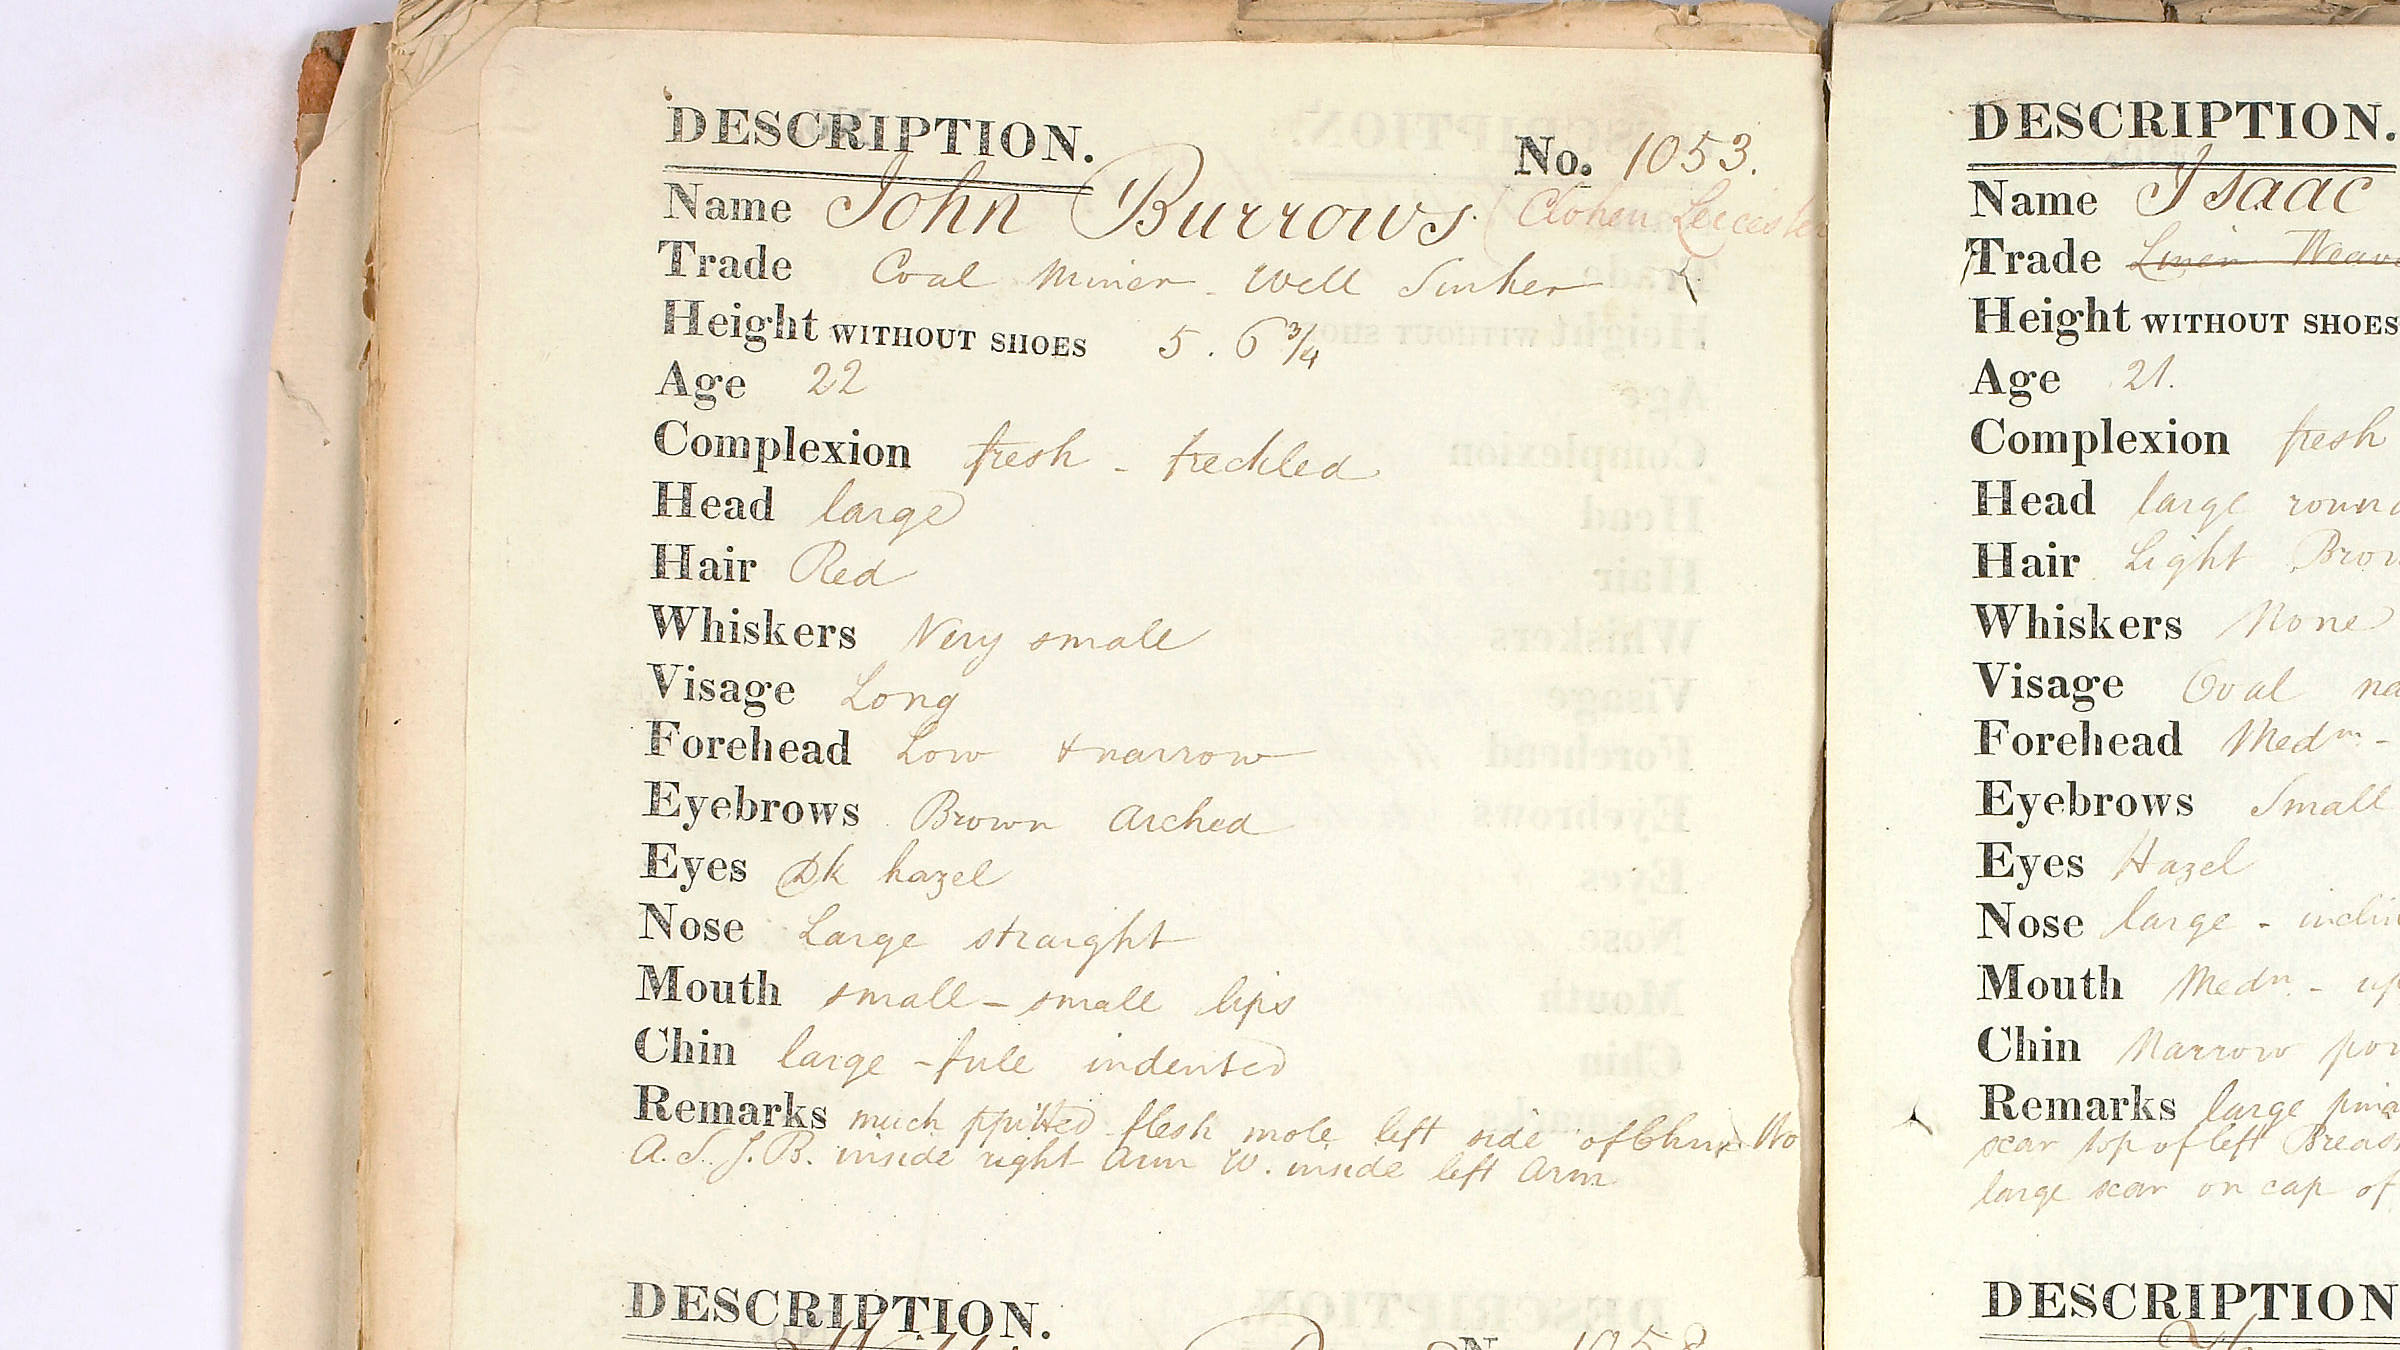 DESCRIPTION.
No. 1053.
Name John Burrows (Leicester
Trade Coal Miner - Well Sinker
Height WITHOUT SHOES 5 . 6 3/4
Age 22
Complexion fresh - freckled
Head large
Hair Red
Whiskers Very small
Visage Long
Forehead Low & narrow
Eyebrows Brown Arched
Eyes Dk hazel
Nose Large straight
Mouth small - small lips
Chin large - full indented
Remarks much pitted flesh mole left side of Chin
A. S. J. B. inside right Arm W. inside left Arm
DESCRIPTION.
No 1058
DESCRIPTION.
Name Isaac
Trade Linen Weav
Height WITHOUT SHOES
Age 21.
Complexion fresh
Head large roun
Hair Light Bro
Whiskers None
Visage Oval na
Forehead Medm -
Eyebrows Small
Eyes Hazel
Nose large - inclin
Mouth Medn - up
Chin Narrow poi
Remarks large
scar top of left Breas
large scar on cap of
DESCRIPTION